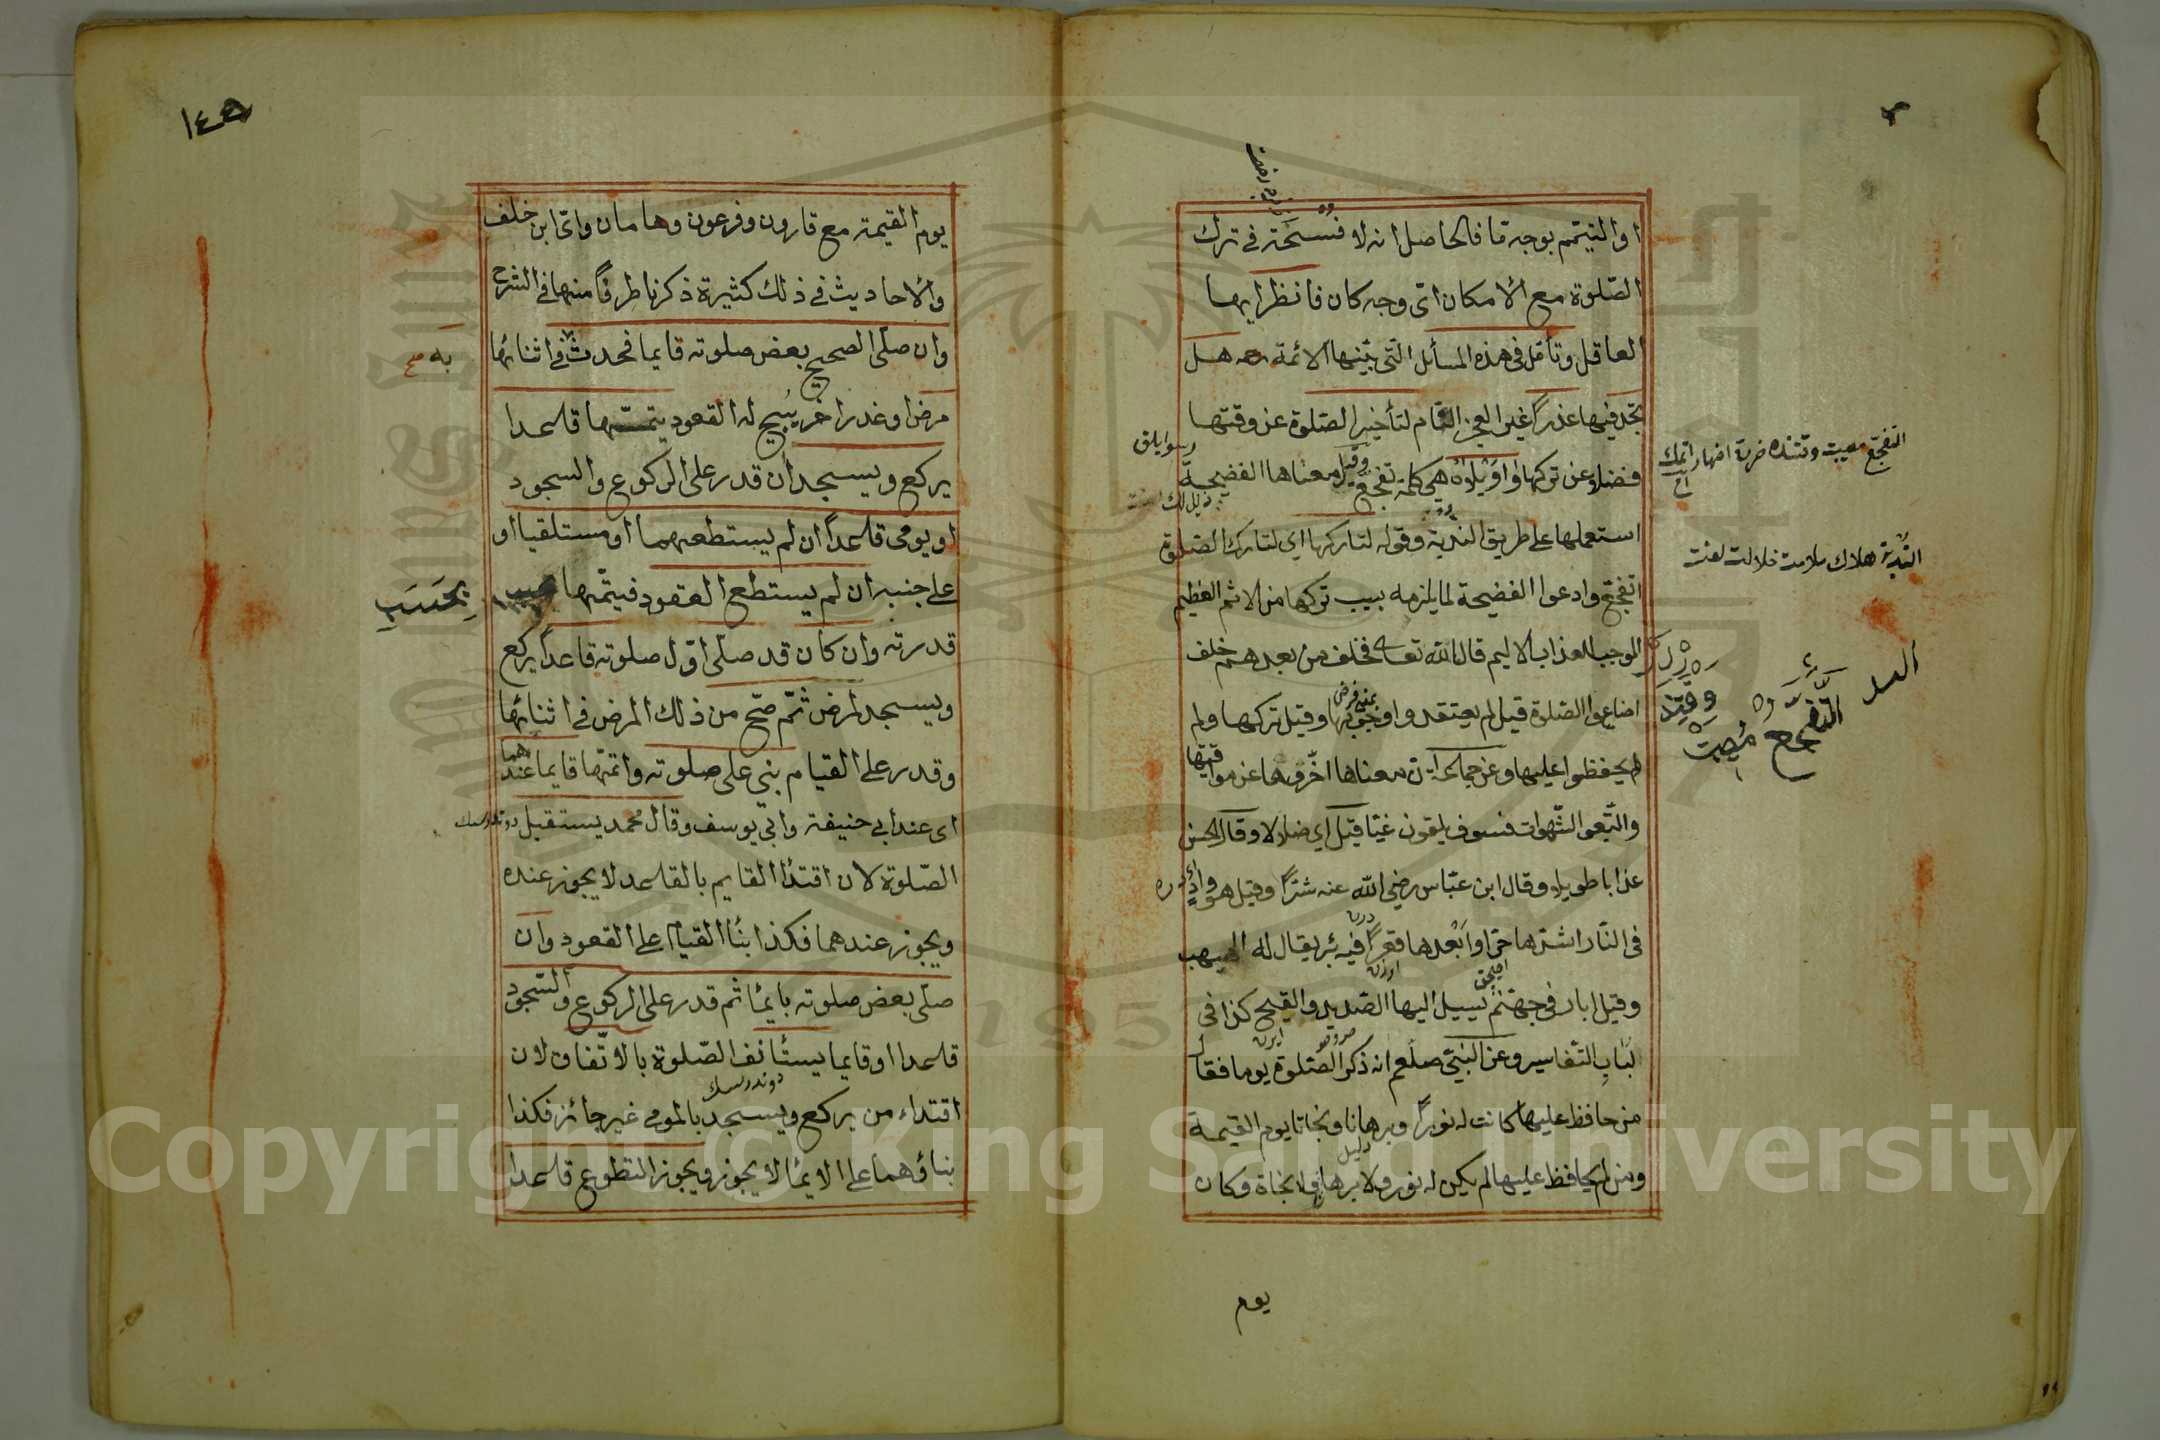 او التيمّم بوجه ما فالحاصل انه لا فسحة في ترك
الصّلوة مع الامكان اىّ وجه كان فانظر ايها
العاقل وتأمّل فى هذه المسأئل الّتى بيّنها الائمة رحمه هل
تجد فيها عذراً غير العجز التّام لتأخير الصّلوة عن وقتها
فضلا عن تركها واوَيْلاهُ هي كلمة تفجّع وقيل معناها الفضيحة
استعملها على طريق الندبة وقوله لتاركها اي لتارك الصّلوة
اتفجّع وادعوا الفضيحة لما يلزمه بسبب تركها من الاثم العظيم
الموجب للعذاب الاليم قال الله تعالى فخلف من بعدهم خلف
اضاعوا الصّلوة قيل لم يعتقدوا وجوبها وقيل تركها ولم
لم يحفظوا عليها وعن جماعة ان معناها اخّروها عن مواقيتها
والتّبعوا الشّهوات فسوف يلقون غيّا قيل اي ضلالا وقال الحسن
عذابا طويلا وقال ابن عبّاس رضي الله عنه شرّاً وقيل هو وادٍ
فى النّار اشدّها حرّا وابعدها قعراً فيه بئر يقال له الهيهب
وقيل ابار فى جهنّم يسيل اليها الصّديد والقيح كذا فى
لباب التّفاسير وعن النبيّ صلعم انه ذكر الصّلوة يوما فقال
من حافظ عليها كانت له نوراً وبرهانا ونجاتا يوم القيمة
ومن لم يحافظ عليها لم يكن له نور ولا برهان ولا نجاة وكان
يوم
التفجّع
الندبة هلاك ملامت ضلالت لعنت
التفجع مصيبت
رسوايلق
دليل
١٤٥
يوم القيمة مع قارون وفرعون وهامان وابىّ ابن خلف
والاحاديث فى ذلك كثيرة ذكرنا طرفاً منها فى الشرح
وان صلّى الصحيح بعض صلوته قايما فحدث فى اثنائها
به صح
مرض او عذر اخر يبيح له القعود يتمّها قاعدا
يركع ويسجد ان قدر على الركوع والسجود
او يومى قاعداً ان لم يستطعهما او مستلقيا او
على جنبه ان لم يستطع العقود فيتمّها
بِحَسَبِ
قدرته وان كان قد صلّى اوّل صلوته قاعداً يركع
ويسجد لمرض ثمّ صحّ من ذلك المرض فى اثنائها
وقدر على القيام بني على صلوته واتمّها قايما عندهما
اى عند ابى حنيفة وابي يوسف وقال محمد يستقبل
الصّلوة لان اقتدا القايم بالقاعد لا يجوز عنده
ويجوز عندهما فكذا بناُ القيام على القعود وان
صلّى بعض صلوته بايماُ ثم قدر على الركوع والسّجود
قاعدا او قايما يستأنف الصّلوة بالاتّفاق لان
اقتداء من يركع ويسجد بالمومى غير جائز فكذا
بناؤهما على الايماُ لا يجوز ويجوز التطوع قاعدا
Copyright © King Saud University
1957